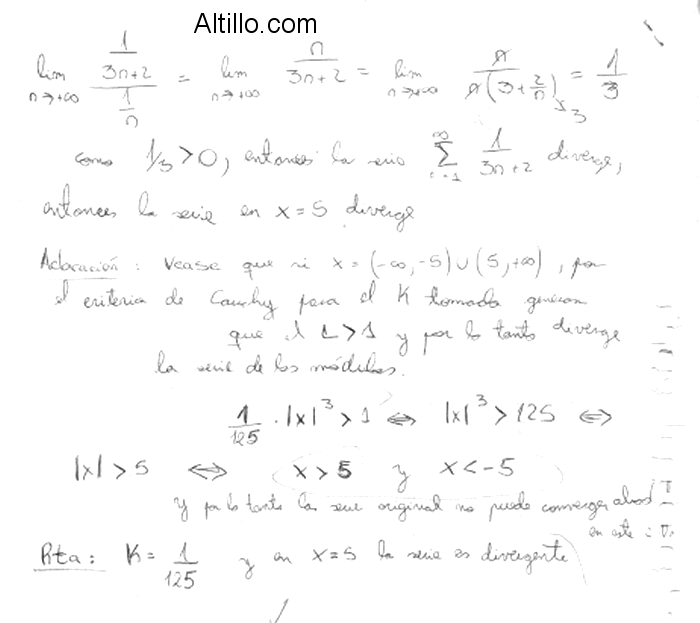 Altillo.com
lim n→+∞ (1/(3n+2))/(1/n) = lim n→+∞ n/(3n+2) = lim n→+∞ n/(n(3+2/n)) = 1/3
como 1/3 > 0, entonces la serie ∞ Σ 1/(3n+2) diverge,
entonces la serie en x = 5 diverge
Aclaración: Vease que si x = (-∞,-5) ∪ (5,+∞), por
el criterio de Cauchy para el K tomado
que el L > 1 y por lo tanto diverge
la serie de los módulos.
1/125 . |x|³ > 1 ⇔ |x|³ > 125 ⇔
|x| > 5 ⇔ x > 5 y x < -5
y por lo tanto la serie original no puede converger
en este
Rta: K = 1/125 y en x=5 la serie es divergente